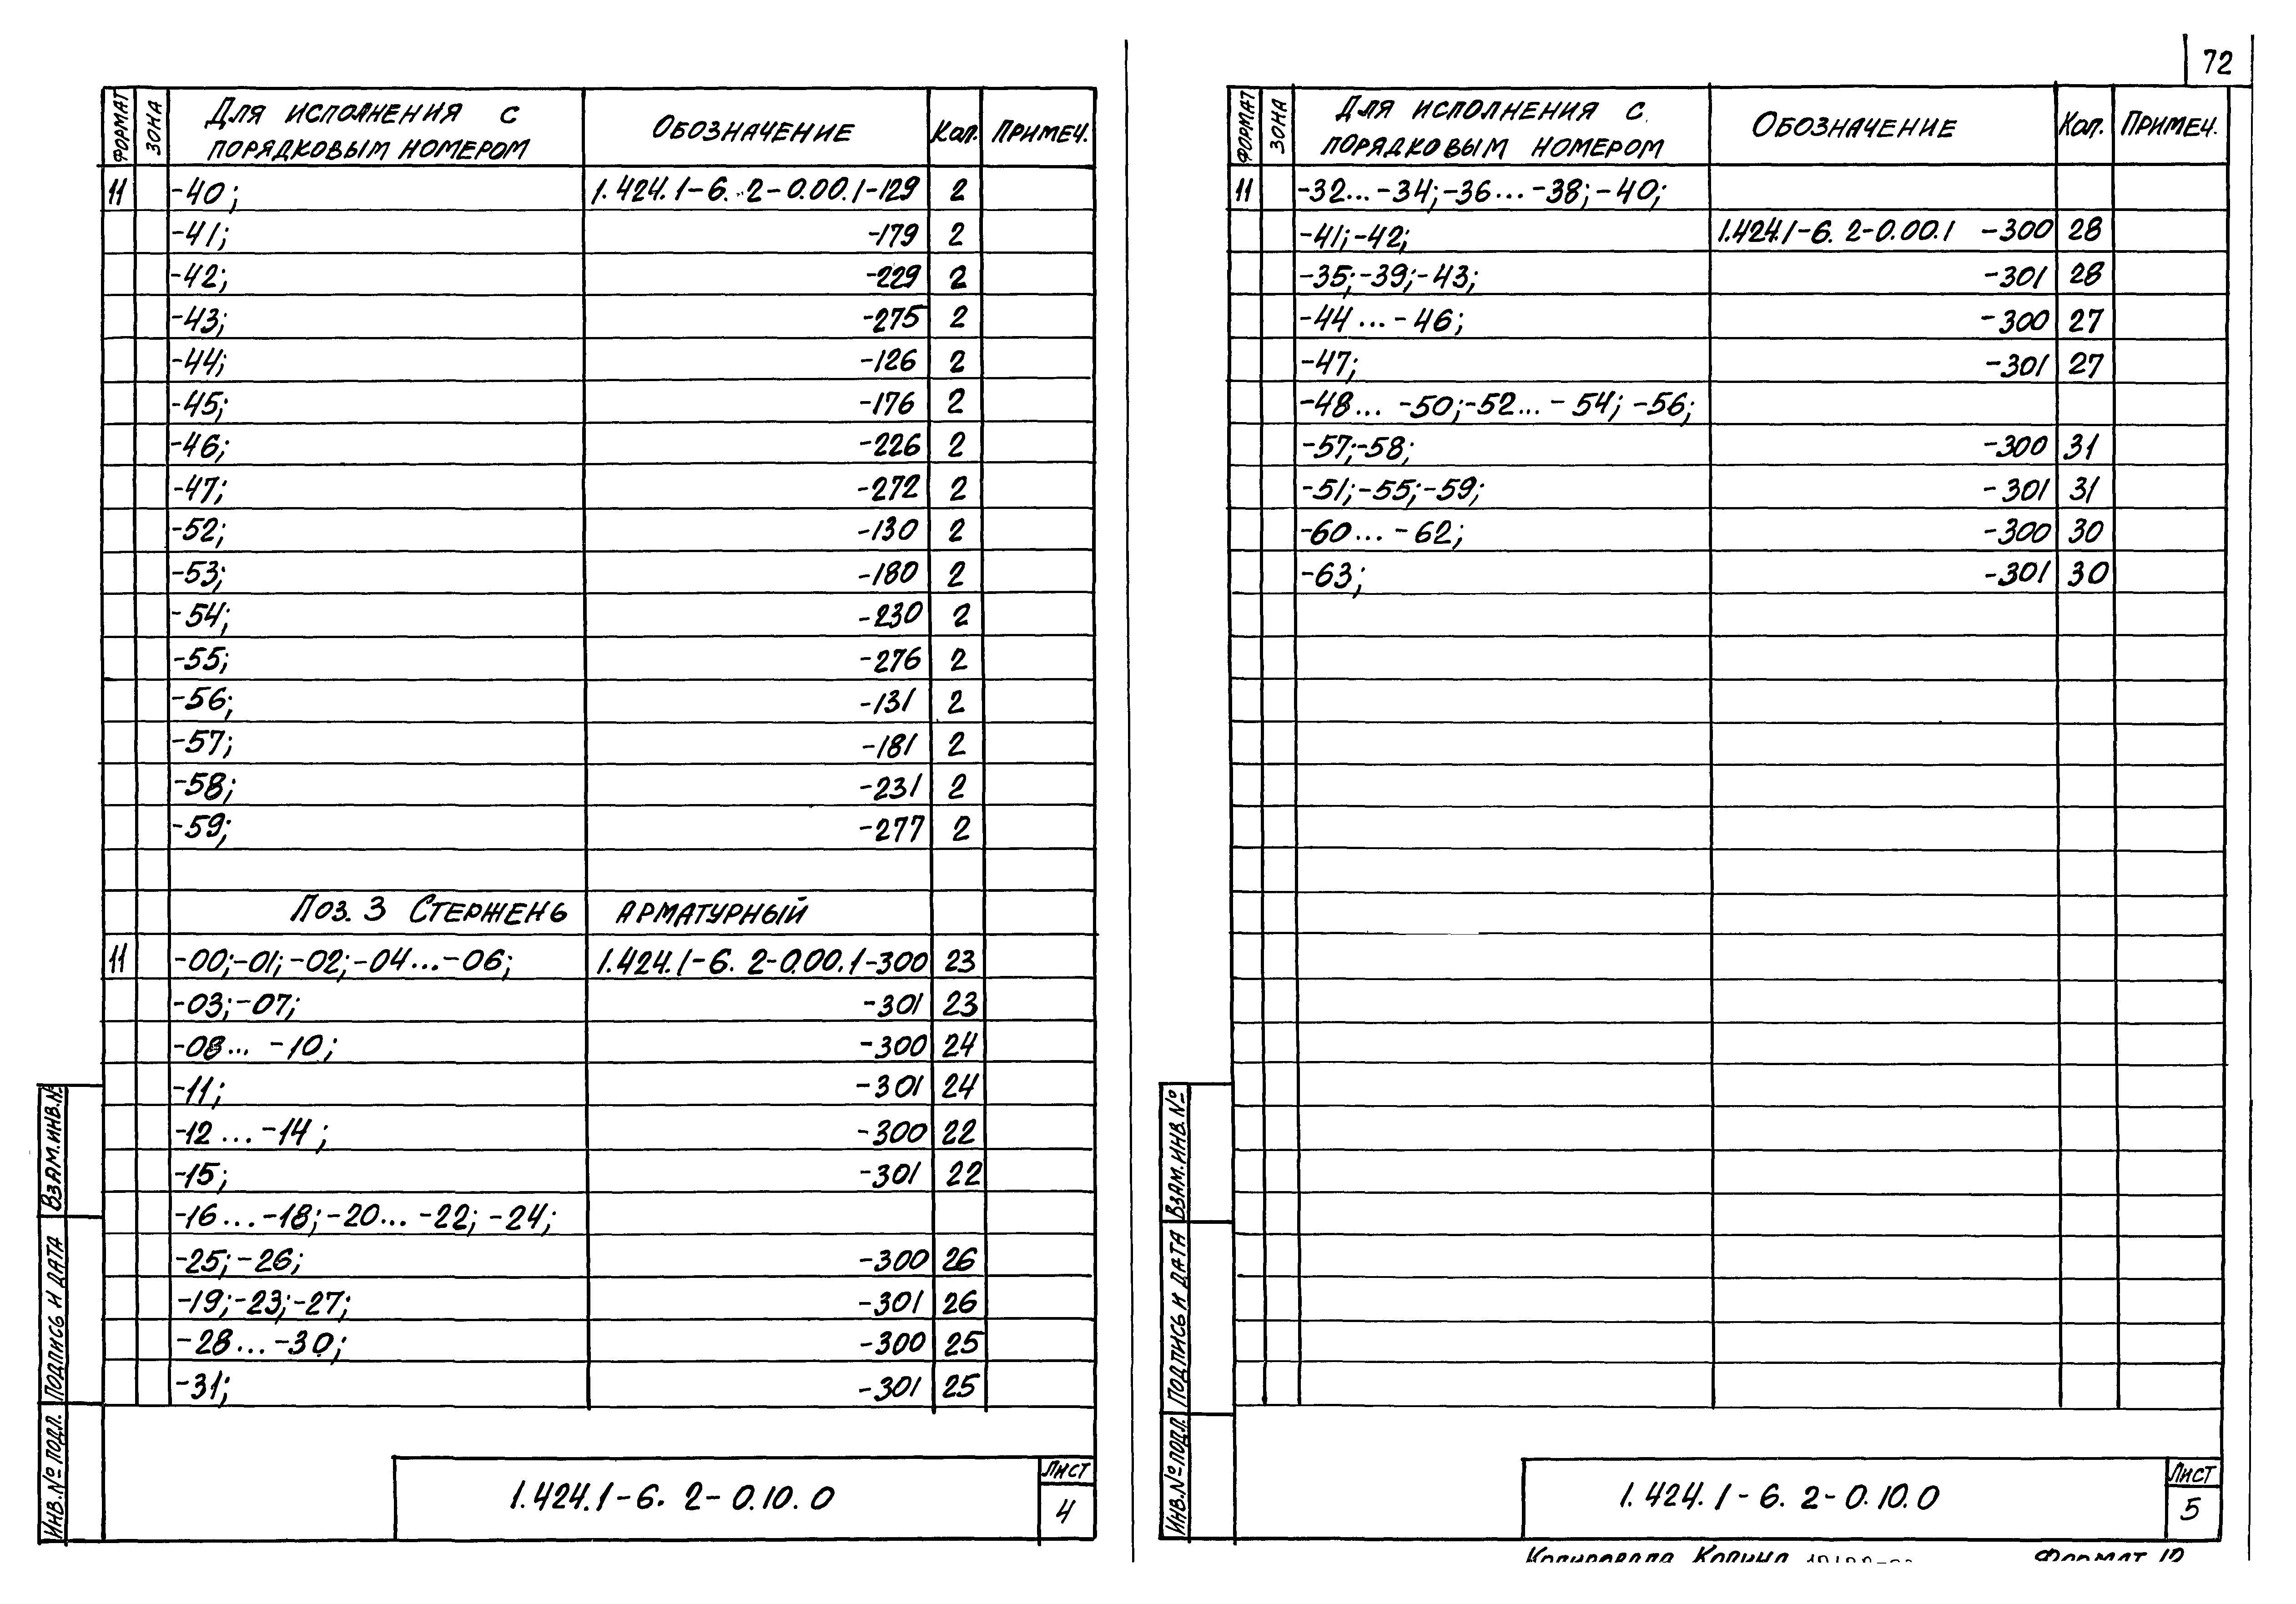 72
ФОРМАТ ЗОНА Для исполнения с порядковым номером Обозначение Кол. Примеч.
11 -40; 1.424.1-6. 2-0.00.1-129 2
-41; -179 2
-42; -229 2
-43; -275 2
-44; -126 2
-45; -176 2
-46; -226 2
-47; -272 2
-52; -130 2
-53; -180 2
-54; -230 2
-55; -276 2
-56; -131 2
-57; -181 2
-58; -231 2
-59; -277 2
Поз. 3 Стержень арматурный
11 -00;-01;-02;-04...-06; 1.424.1-6. 2-0.00.1-300 23
-03;-07; -301 23
-08... -10; -300 24
-11; -301 24
-12...-14; -300 22
-15; -301 22
-16...-18;-20... -22; -24;
-25;-26; -300 26
-19;-23;-27; -301 26
-28...-30; -300 25
-31; -301 25
Взам. инв. №
Подпись и дата
Инв. № подл.
1.424.1-6. 2-0.10.0
Лист
4
ФОРМАТ ЗОНА Для исполнения с порядковым номером Обозначение Кол. Примеч.
11 -32...-34;-36...-38;-40;
-41;-42; 1.424.1-6. 2-0.00.1 -300 28
-35;-39;-43; -301 28
-44...-46; -300 27
-47; -301 27
-48... -50;-52...-54; -56;
-57;-58; -300 31
-51;-55;-59; -301 31
-60...-62; -300 30
-63; -301 30
Взам. инв. №
Подпись и дата
Инв. № подл.
1.424.1-6. 2-0.10.0
Лист
5
Копировала Формат 12